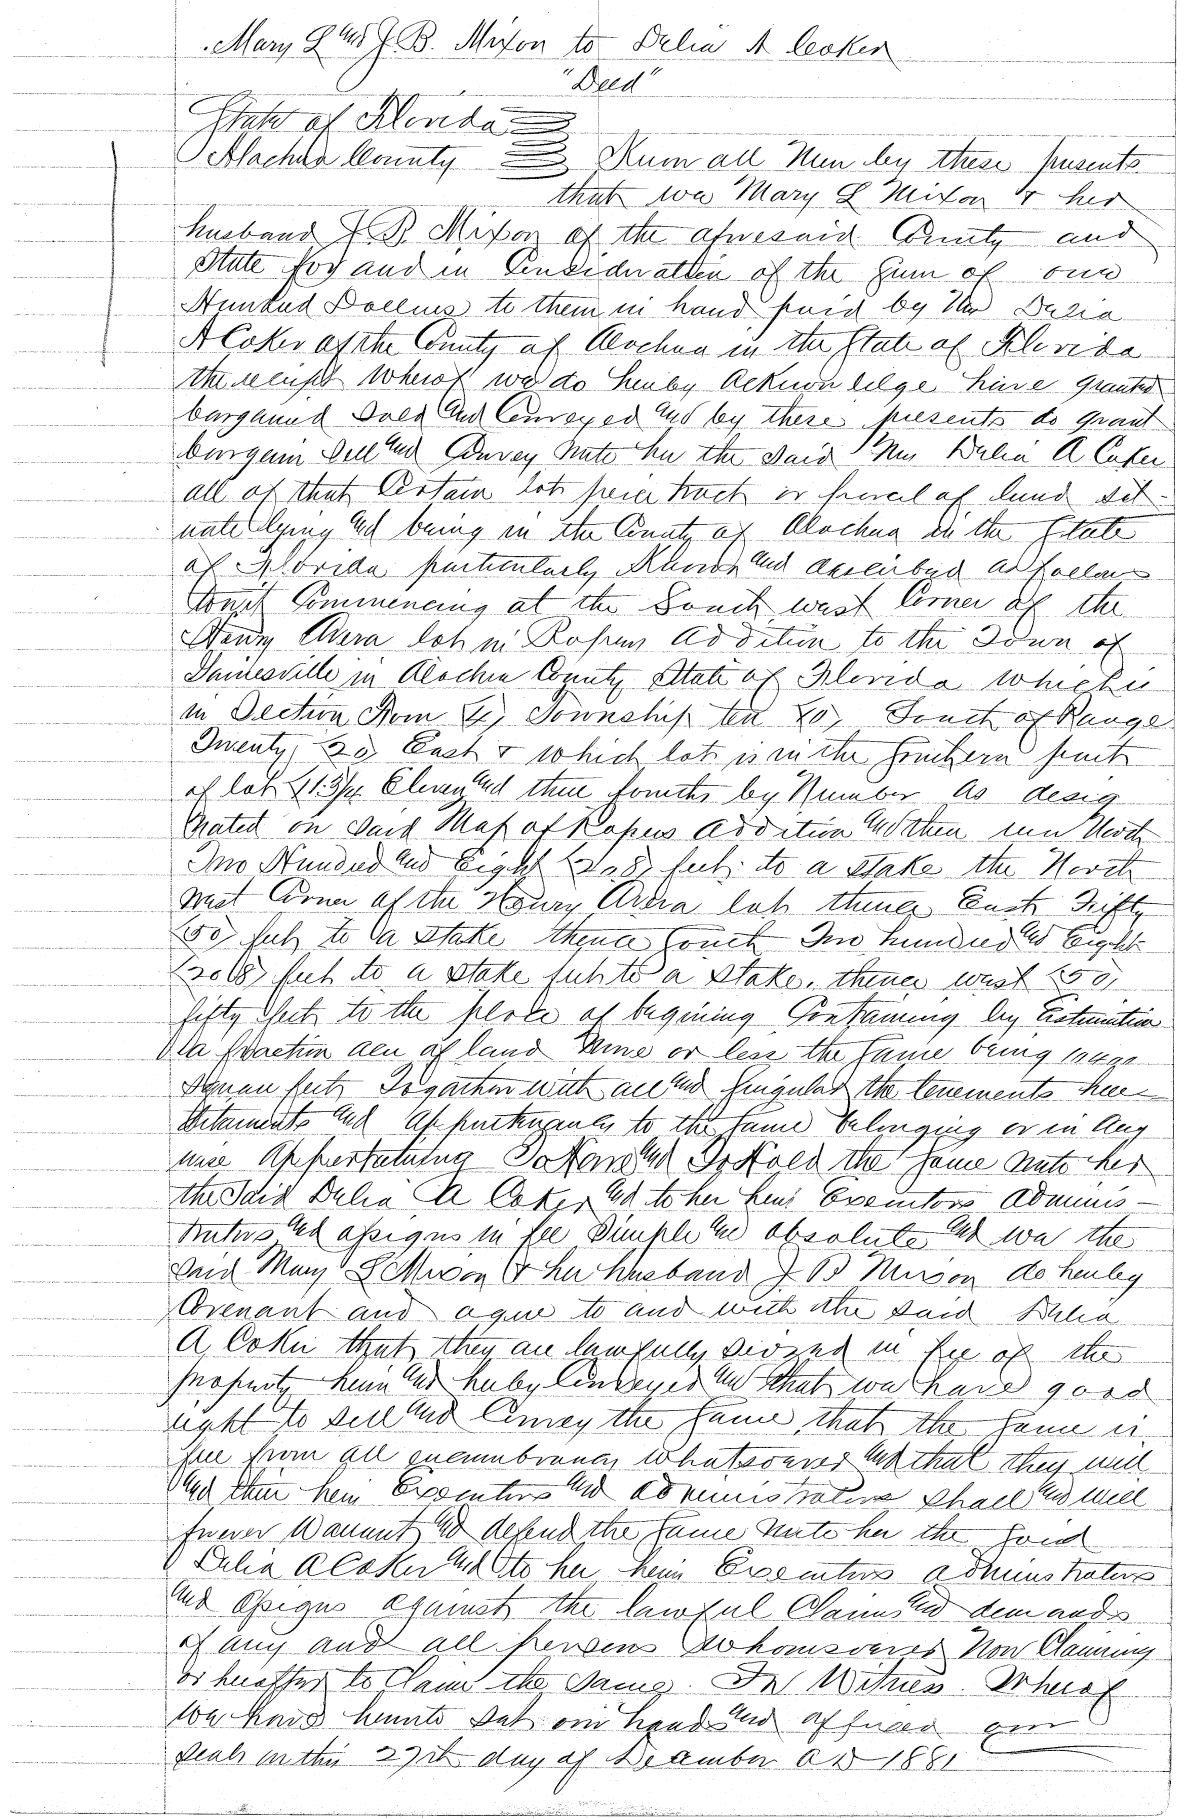 Mary L and J. B. Mixon to Delia A Coker
"Deed"
State of Florida
Alachua County Know all Men by these presents
that we Mary L Mixon & her
husband J B Mixon of the aforesaid County and
State for and in Consideration of the Sum of one
Hundred Dollars to them in hand paid by Mrs Delia
A Coker of the County of Alachua in the State of Florida
the receipt Whereof we do hereby Acknowledge have granted
bargained Sold and Conveyed and by these presents do grant
bargain Sell and Convey unto her the Said Mrs Delia A Coker
all of that Certain lot piece tract or parcel of land sit-
uate lying and being in the County of Alachua in the State
of Florida particularly Known and described as follows
towit Commencing at the South west Corner of the
Henry Avera lot in Ropers Addition to the Town of
Gainesville in Alachua County State of Florida which is
in Section Four (4) Township ten (10) South of Range
Twenty (20) East & which lot is in the Southern part
of lot (11 3/4 Eleven and three fourths by Number as desig
nated on Said Map of Ropers Addition and then run North
Two Hundred and Eight (208) feet to a stake the North
west Corner of the Henry Avera lot thence East Fifty
(50) feet to a stake thence South Two hundred and Eight
(208) feet to a stake feet to a stake, thence west (50)
fifty feet to the place of begining Containing by Estimation
a fraction acre of land more or less the Same being
Square feet Together with all and Singular the tenements here-
ditaments and Appurtenances to the Same belonging or in Any
wise Appertaining To Have and To Hold the Same unto her
the Said Delia A Coker and to her heirs Executors Adminis-
trators and assigns in fee Simple and absolute and we the
Said Mary L Mixon & her husband J B Mixon do hereby
Covenant and agree to and with the said Delia
A Coker that they are lawfully siezed in fee of the
property herein and hereby Conveyed and that we have good
right to Sell and Convey the Same, that the Same is
free from all encumbrances whatsoever and that they will
and their heirs Executors and Administrators Shall and will
forever Warrant and defend the Same unto her the Said
Delia A Coker and to her heirs Executors administrators
and Assigns against the lawful Claims and demands
of any and all persons whomsoever Now Claiming
or hereafter to Claim the Same. In Witness Whereof
We have hereunto Set our hands and affixed our
Seals on this 27th day of December A D 1881